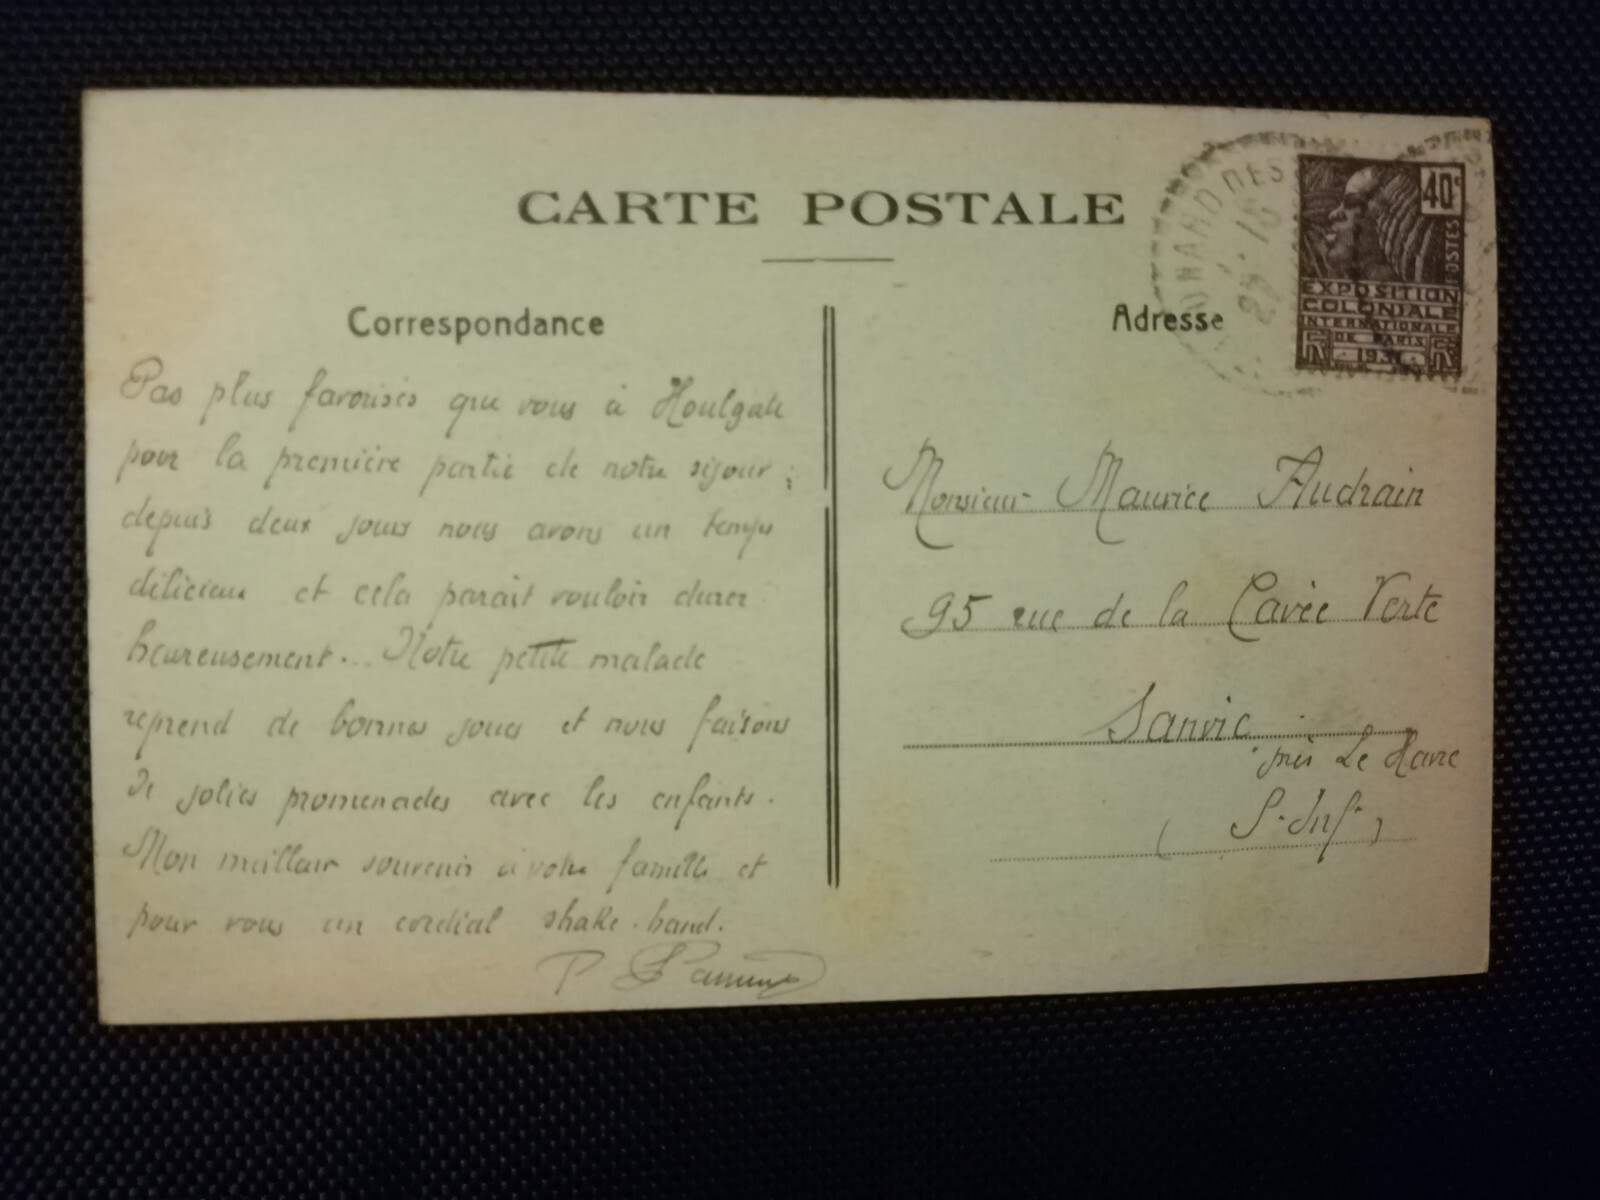 CARTE POSTALE
Correspondance
Pas plus favorisés que vous à Houlgate
pour la première partie de notre séjour ;
depuis deux jours nous avons un temps
délicieux et cela parait vouloir durer
heureusement... Notre petite malade
reprend de bonnes joues et nous faisons
de jolies promenades avec les enfants.
Mon meilleur souvenir à votre famille et
pour vous un cordial shake-hand.
P
Adresse
Monsieur Maurice Audrain
95 rue de la Cavée Verte
Sanvic
près Le Havre
(S. Inf.)
40c
POSTES
EXPOSITION
COLONIALE
INTERNATIONALE
DE PARIS
1931
RF